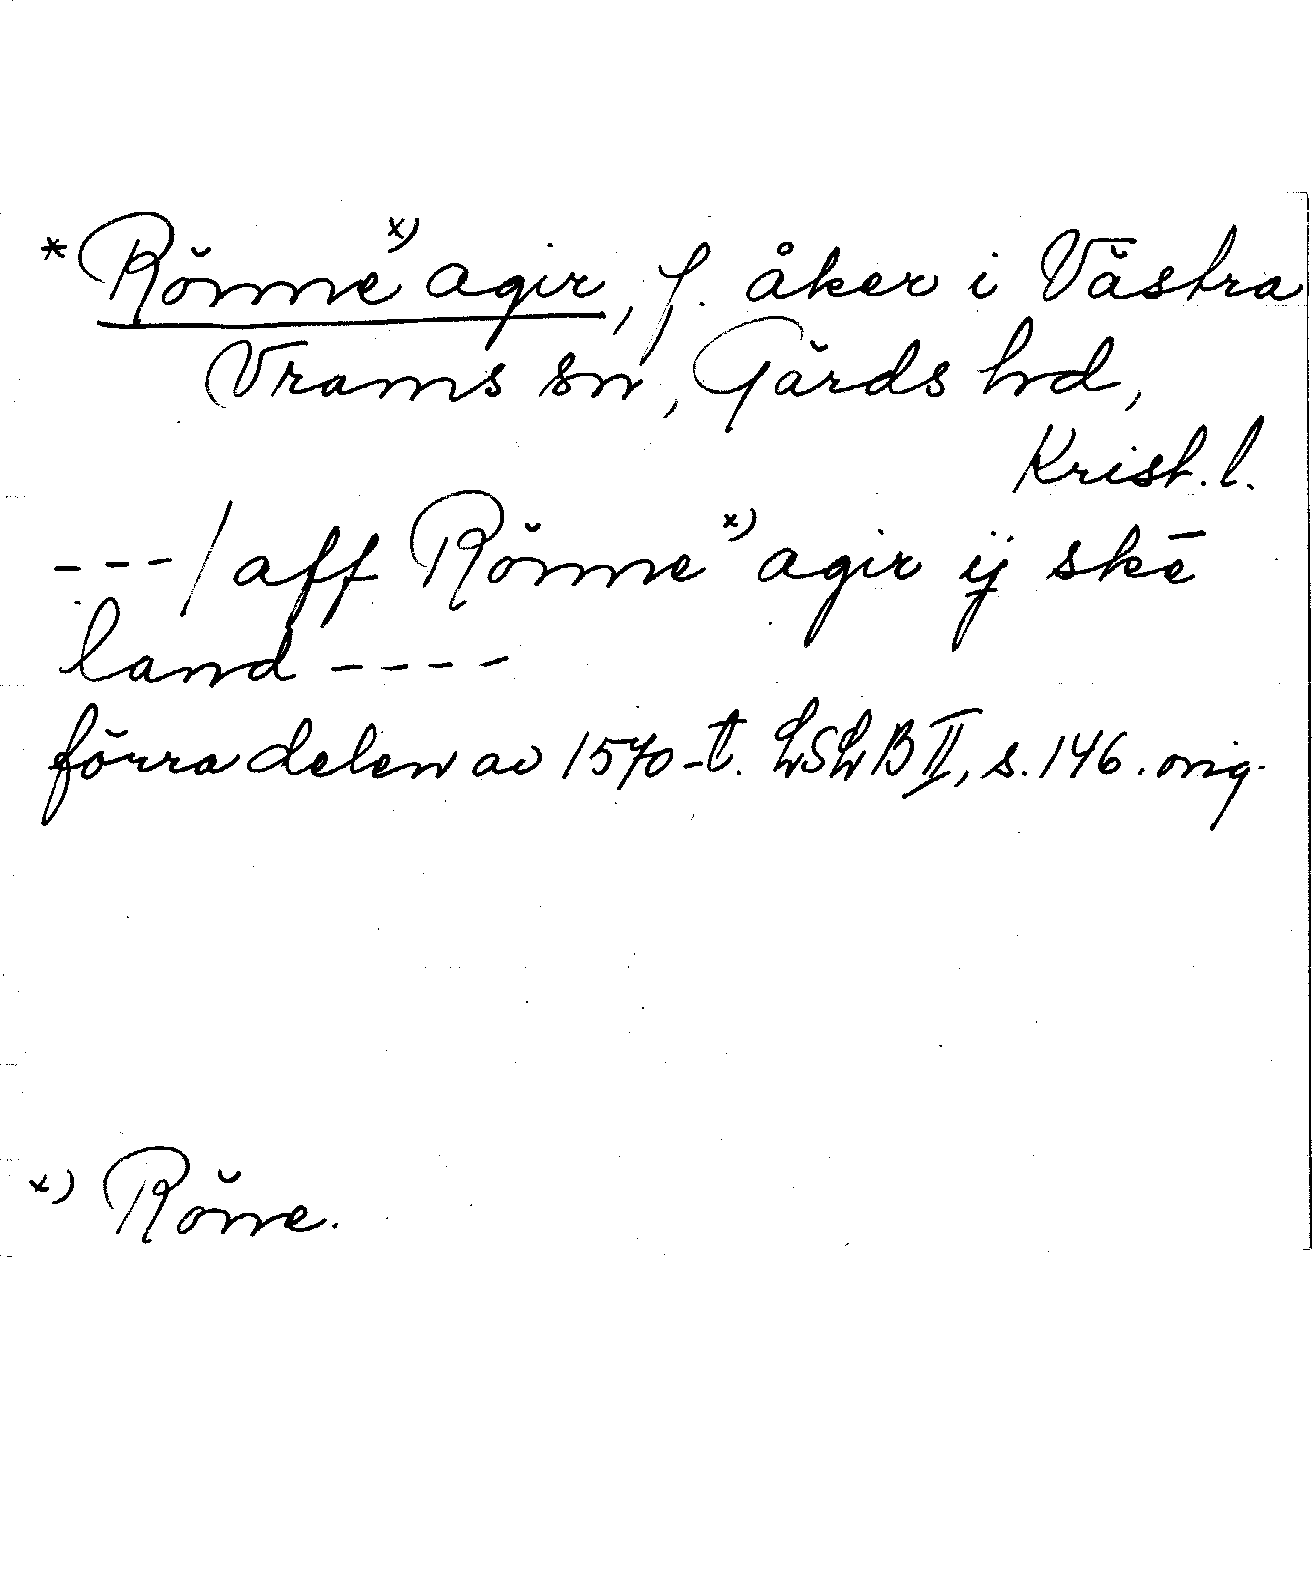 *Rönne x) agir, f. åker i Västra
Vrams sn, Gärds hd,
Krist. l.
---/ aff Rönne x) agir ij skē
land ----
förra delen av 1570-t. LSLB II, s. 146. orig.
x) Röne.